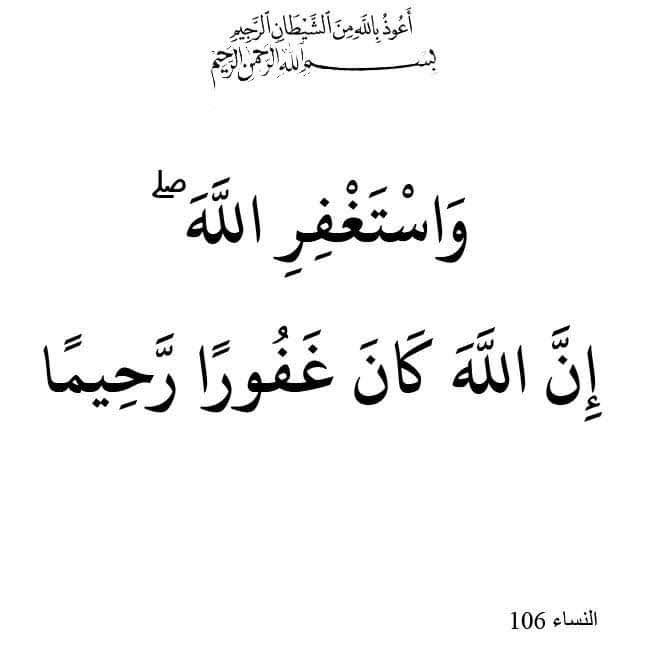 أَعُوذُ بِاللَّهِ مِنَ الشَّيْطَانِ الرَّجِيمِ
بسم الله الرحمن الرحيم
وَاسْتَغْفِرِ اللَّهَ ۖ
إِنَّ اللَّهَ كَانَ غَفُورًا رَّحِيمًا
النساء 106